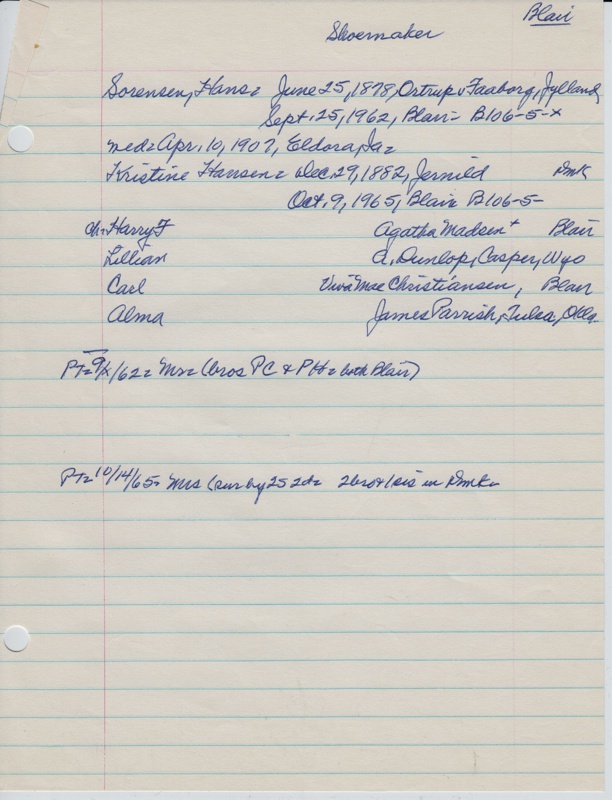 Blair
Shoemaker
Sorensen, Hans= June 25, 1878, Ostrup v Faaborg, Jylland
Sept. 25, 1962, Blair= B106-5-x
med= Apr. 10, 1907, Eldora, Ia=
Kristine Hansen= Dec. 29, 1882, Jernild Dmk
Oct. 9, 1965, Blair B106-5-
ch= Harry F Agatha Madsen+ Blair
Lillian A. Dunlop, Casper, Wyo
Carl Viva Mae Christiansen, Blair
Alma James Parrish, Tulsa, Okla.
PT= 9/x/62= Mrs= (bros PC & PH= both Blair)
PT= 10/14/65= Mrs (sur by 2s 2d= 2bro+1sis in Dmk=